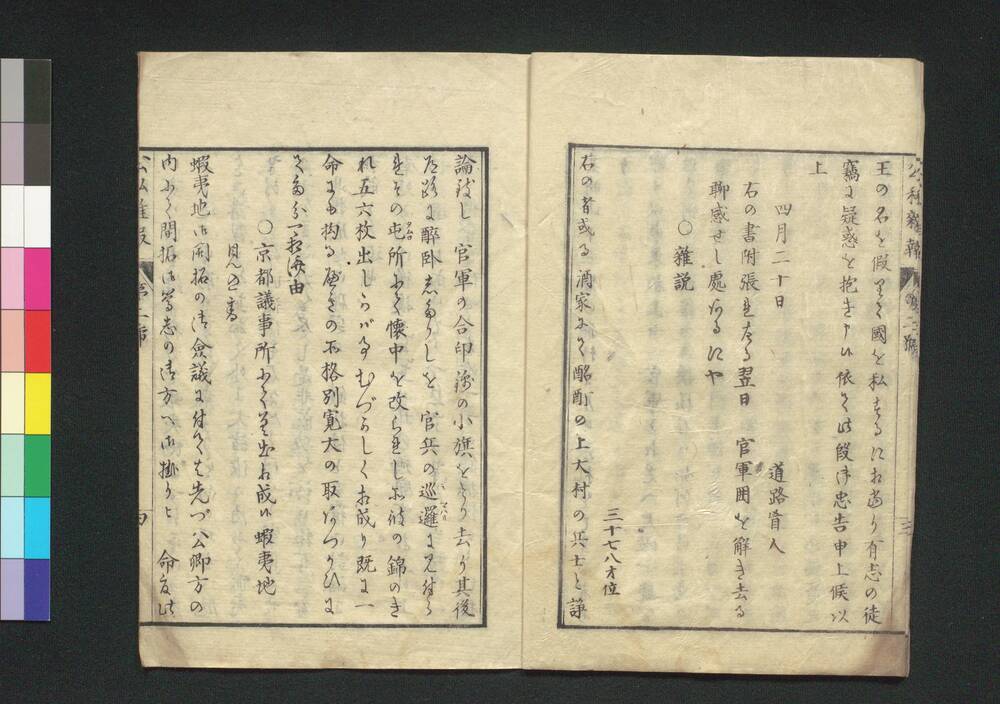 公私雜報 第二號
王の名を假りて國を私するに相當り有志の徒
竊に疑惑を抱き申候依て此段御忠告申上候以
上
四月二十日
道路盲人
右の書附張出たる翌日 官軍囲を解き去る
聊感せし處あるにや
○雜説
三十七八才位
右の者或る酒家にて酩酊の上大村の兵士と諍
三
論致し 官軍の合印の小旗をとり去り其後
道路に醉卧したりしを 官兵の巡邏に見付ら
れその屯所にて懷中を改られしに彼の錦のき
れ五六枚出しかバ事むづかしく相成り既に一
命にも拘る處その不格別寛大の取あつかひに
て多分
○京都議事所にて差出相成候蝦夷地
見込書
蝦夷地御開拓の御僉議に付ては先づ公卿方の
内にて開拓御篤志の御方へ御掛りと 命度此
公私雜報 第二号
四